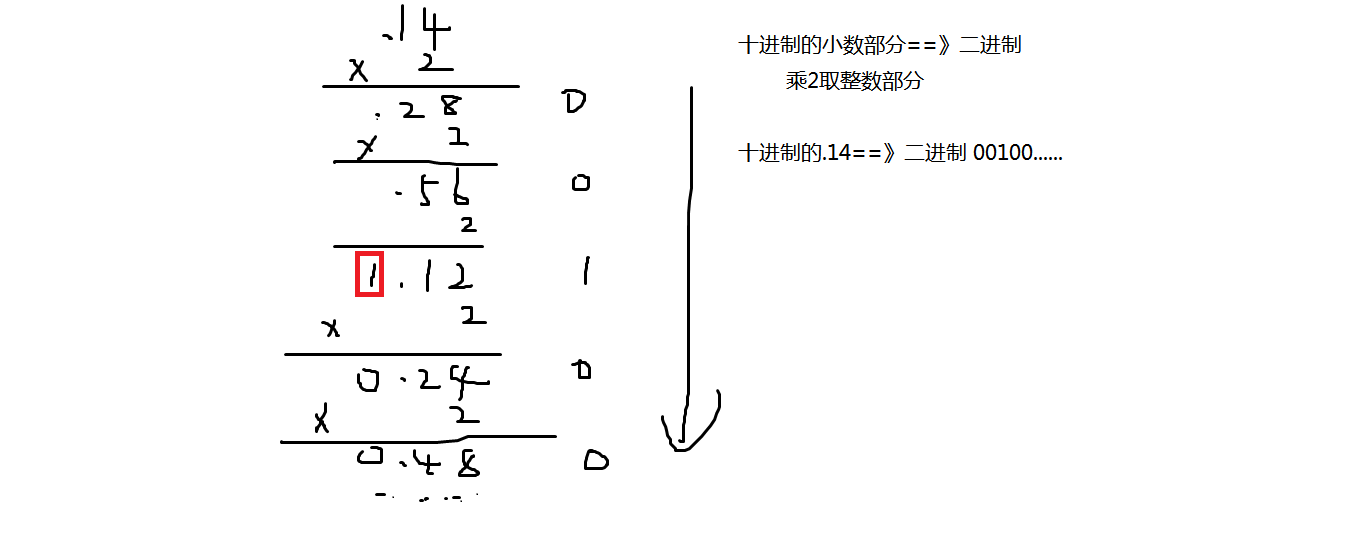 .14
x 2
.28 0
x 2
.56 0
2
1.12 1
x 2
0.24 0
x 2
0.48 0
......
十进制的小数部分==》二进制
乘2取整数部分
十进制的.14==》二进制 00100......